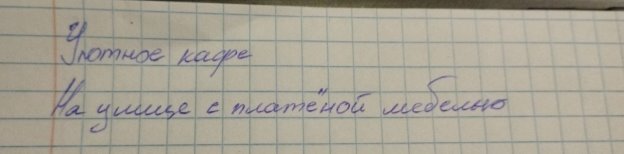 Уютное кафе
На улице с платёной мебелью